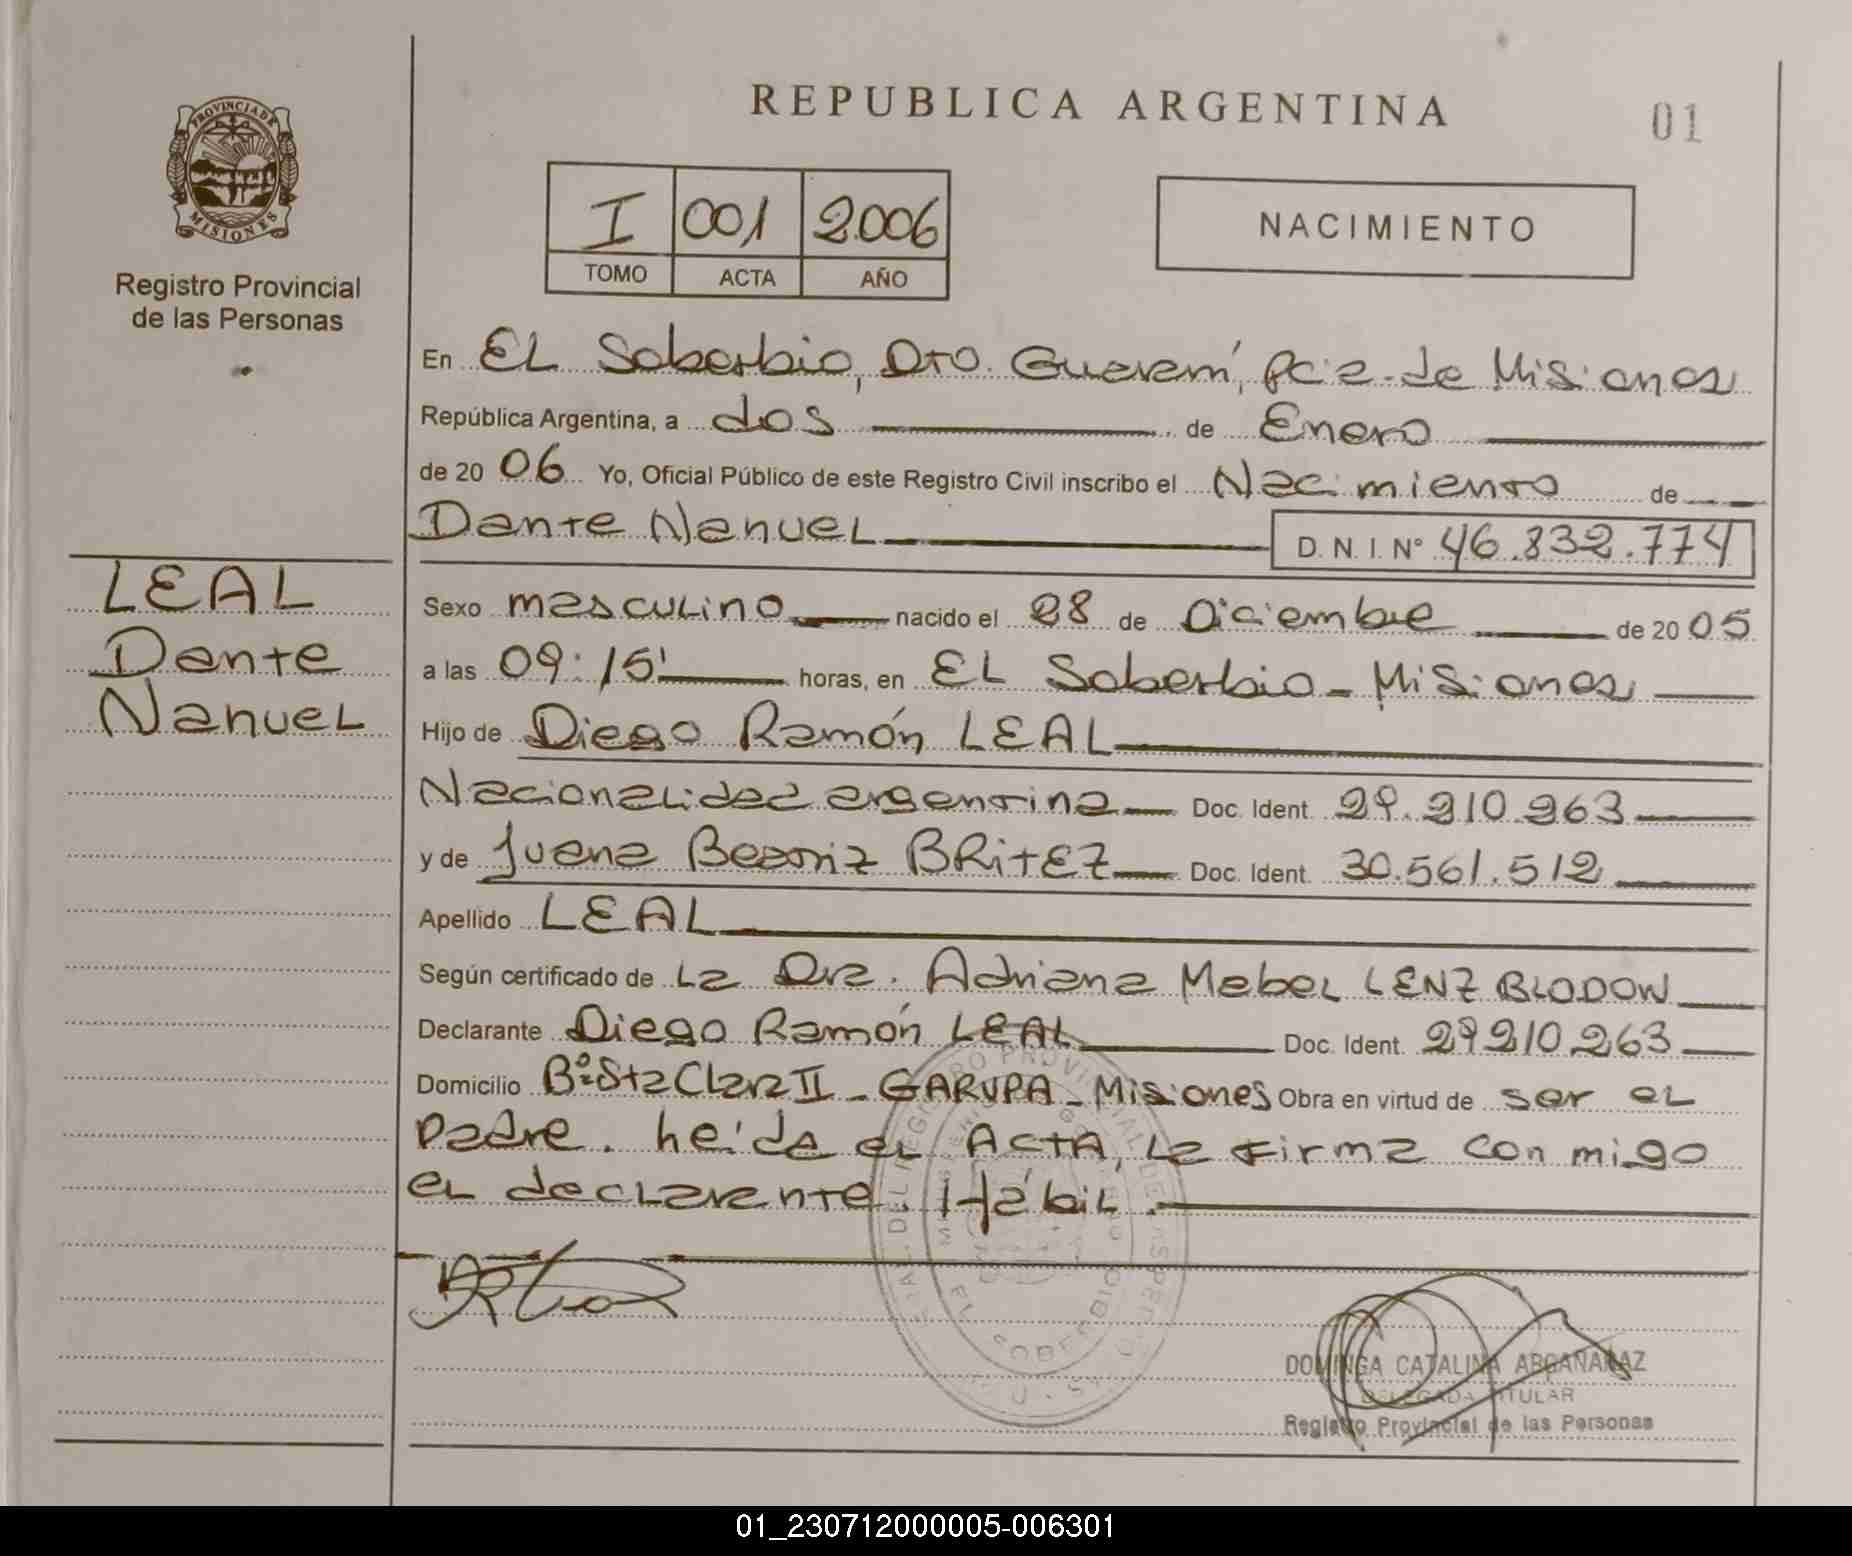 PROVINCIA DE
MISIONES
Registro Provincial
de las Personas
REPUBLICA ARGENTINA
01
I 001 2.006
TOMO ACTA AÑO
NACIMIENTO
En EL Soberbio, Dto. Guaraní, Pcia. de Misiones
República Argentina, a dos de Enero
de 20 06 Yo, Oficial Público de este Registro Civil inscribo el Nacimiento de
Dante Nanuel D. N. I. Nº 46.832.774
LEAL
Dante
Nanuel
Sexo masculino nacido el 28 de Diciembre de 20 05
a las 09:15' horas, en EL Soberbio - Misiones
Hijo de Diego Ramón LEAL
Nacionalidad argentina Doc. Ident. 29.210.263
y de Juana Beatriz BRitEZ Doc. Ident. 30.561.512
Apellido LEAL
Según certificado de La Dra. Adriana Mabel LENZ BLODOW
Declarante Diego Ramón LEAL Doc. Ident. 29210.263
Domicilio Bº Sta Clara II - GARUPA - Misiones Obra en virtud de ser el
padre. heida el ACTA, La firma con migo
el declarante. Hábil.
EL SOBERBIO
DOMINGA CATALINA ARGAÑARAZ
DELEGADA TITULAR
Registro Provincial de las Personas
01_230712000005-006301